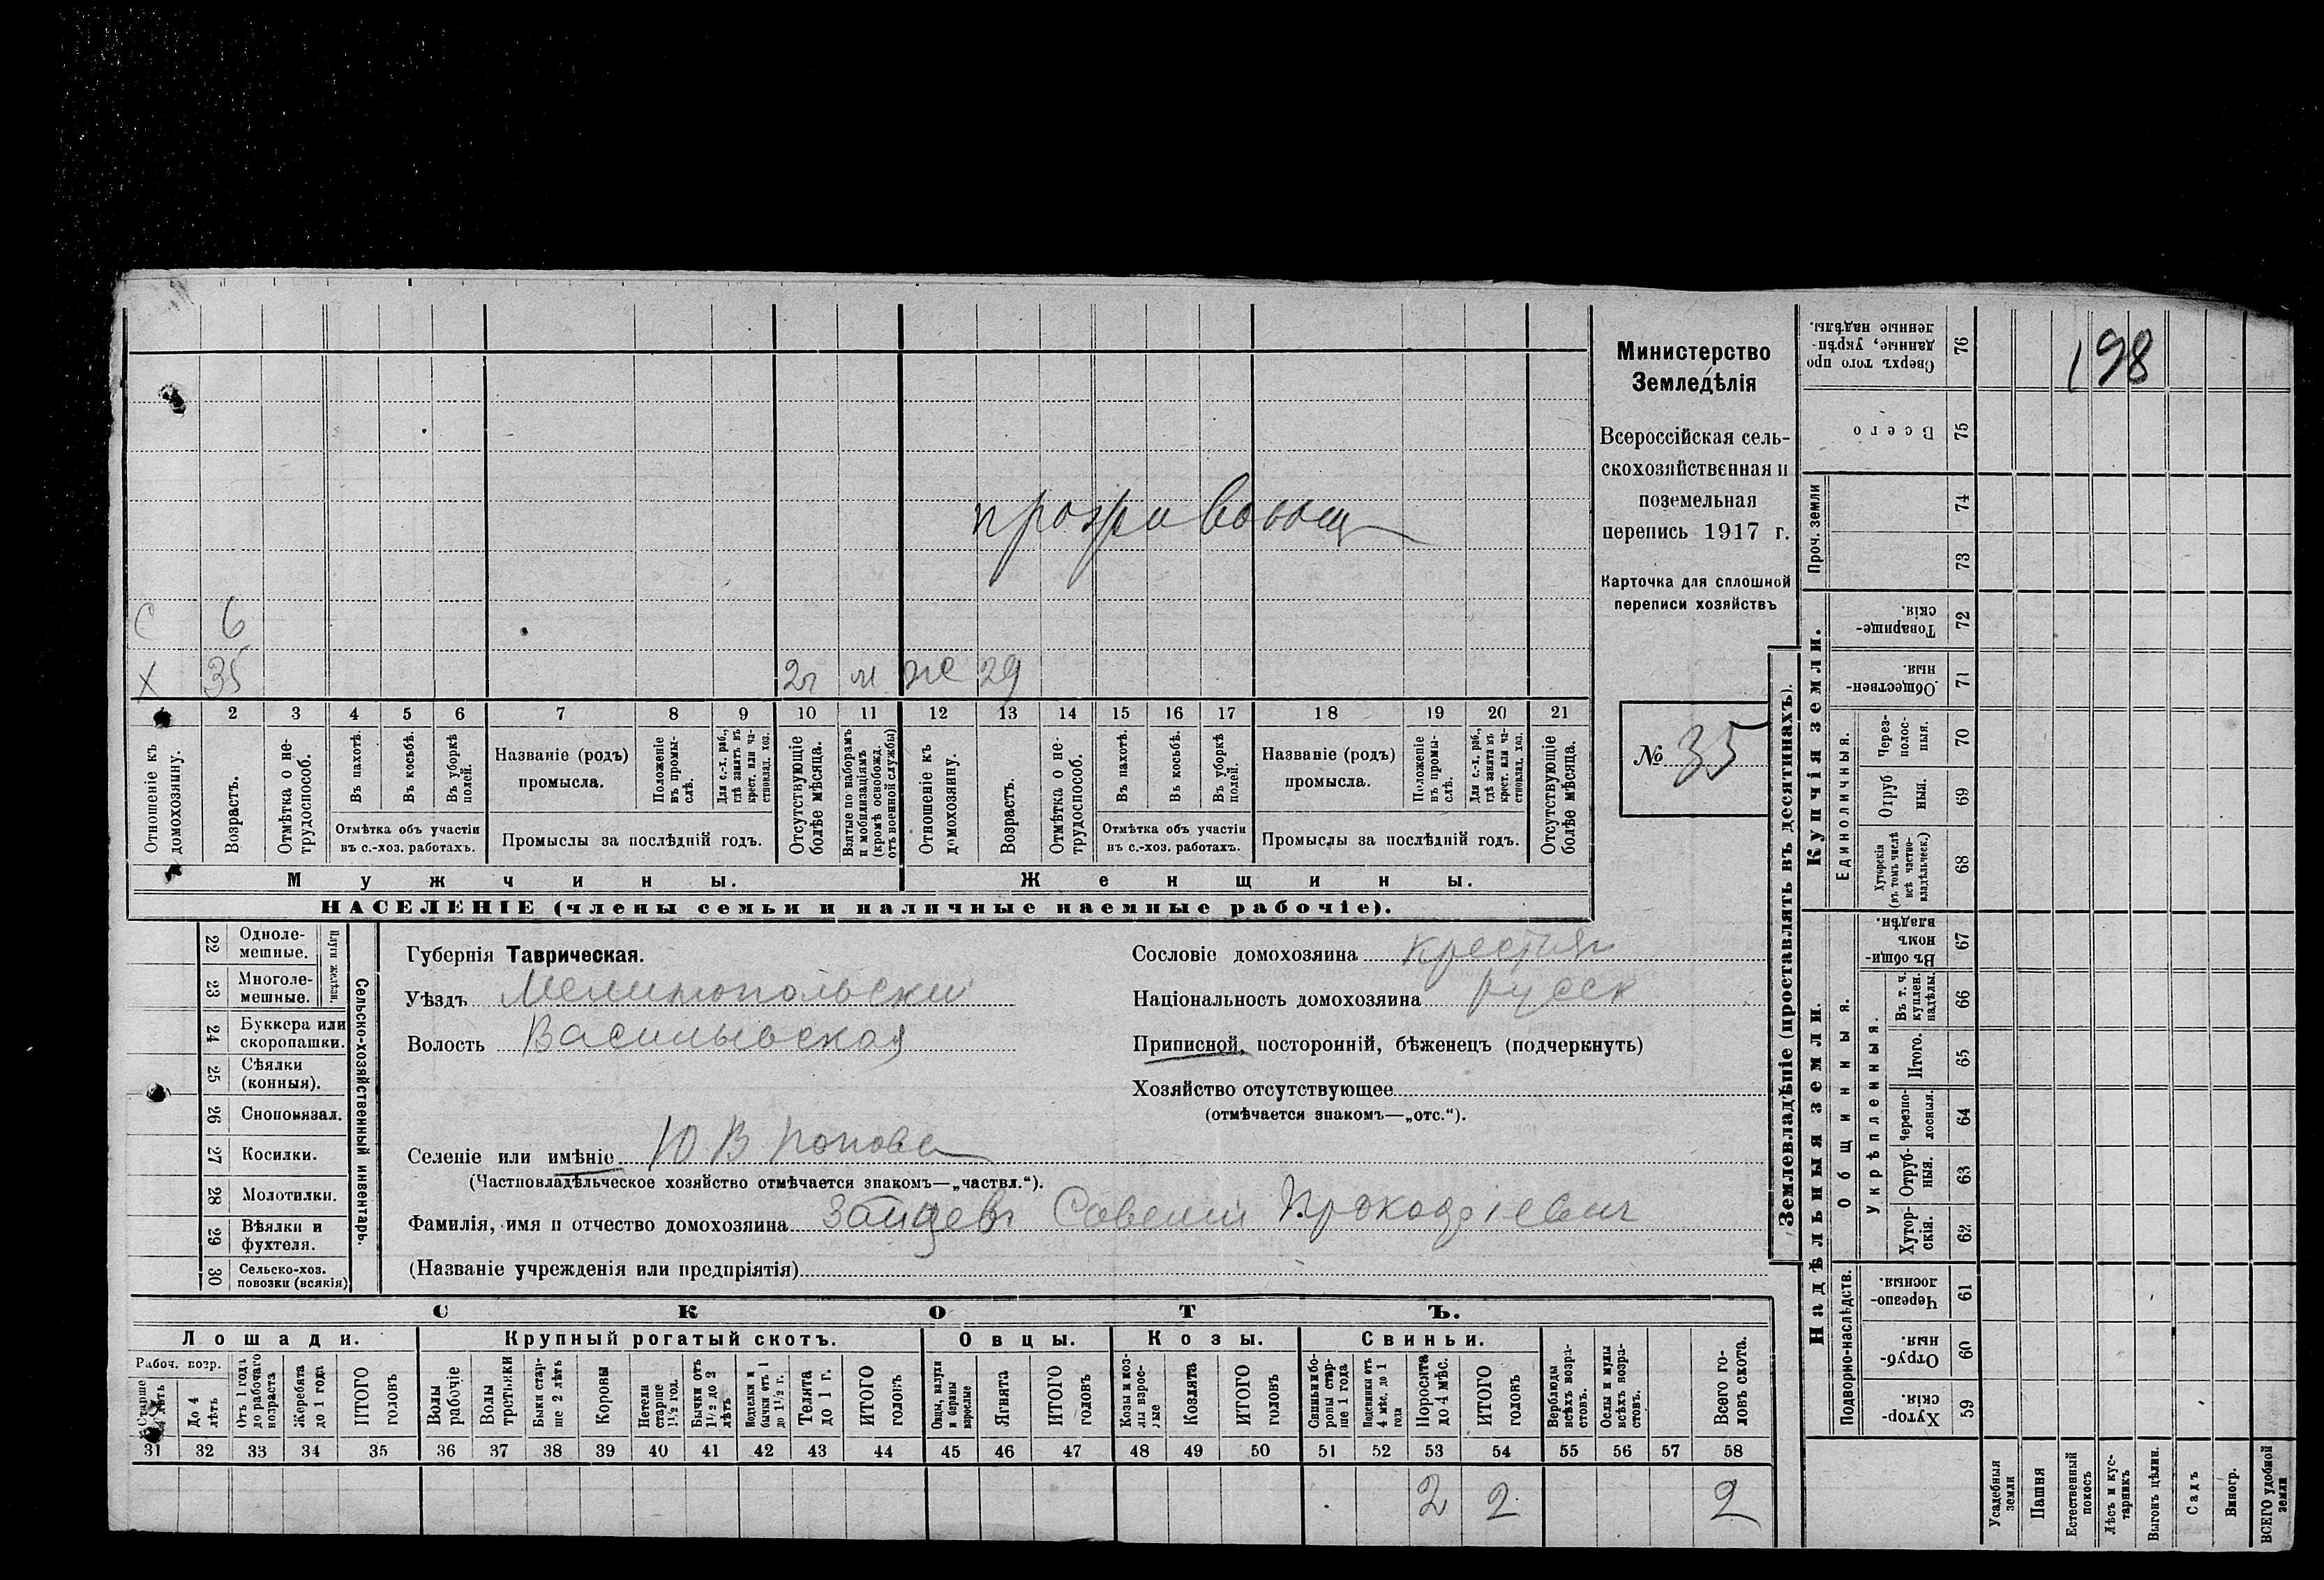 Министерство
Земледѣлія
Всероссійская сель-
скохозяйственная и
поземельная
перепись 1917 г.
Карточка для сплошной
переписи хозяйствъ
№ 35
198
С 6
Х 35 2г м ж 29
1 2 3 4 5 6 7 8 9 10 11 12 13 14 15 16 17 18 19 20 21
Отношеніе къ домохозяину.
Возрастъ.
Отмѣтка о не-трудоспособ.
Въ пахотѣ.
Въ косьбѣ.
Въ уборкѣ полей.
Отмѣтка объ участіи
въ с.-хоз. работахъ.
Названіе (родъ)
промысла.
Положеніе въ промы-слѣ.
Для с.-х. раб., гдѣ занятъ въ крест. или ча-стновлад. хоз.
Промыслы за послѣдній годъ.
Отсутствующіе болѣе мѣсяца.
Взятые по наборамъ и мобилизаціямъ (кромѣ освобожд. отъ военной службы)
Отношеніе къ домохозяину.
Возрастъ.
Отмѣтка о не-трудоспособ.
Въ пахотѣ.
Въ косьбѣ.
Въ уборкѣ полей.
Отмѣтка объ участіи
въ с.-хоз. работахъ.
Названіе (родъ)
промысла.
Положеніе въ промы-слѣ.
Для с.-х. раб., гдѣ занята въ крест. или ча-стновлад. хоз.
Промыслы за послѣдній годъ.
Отсутствующіе болѣе мѣсяца.
Мужчины. Женщины.
НАСЕЛЕНІЕ (члены семьи и наличные наемные рабочіе).
22 Одноле-мешные.
23 Многоле-мешные.
Плуги желѣзн.
24 Буккера или скоропашки.
25 Сѣялки (конныя).
26 Сноповязал.
27 Косилки.
28 Молотилки.
29 Вѣялки и фухтеля.
30 Сельско-хоз. повозки (всякія)
Сельско-хозяйственный инвентарь.
Губернія Таврическая.
Уѣздъ Мелитопольски
Волость Васильевская
Сословіе домохозяина крестьян
Національность домохозяина русск
Приписной, посторонній, бѣженецъ (подчеркнуть)
Хозяйство отсутствующее
(отмѣчается знакомъ—„отс.“).
Селеніе или имѣніе Ю В Попова
(Частновладѣльческое хозяйство отмѣчается знакомъ—„частвл.“).
Фамилія, имя и отчество домохозяина Зайцевъ Савелий Прокофіевич
(Названіе учрежденія или предпріятія)
СКОТЪ.
Лошади. Крупный рогатый скотъ. Овцы. Козы. Свиньи.
Рабоч. возр.
Старше 4 лѣтъ
До 4 лѣтъ
Отъ 1 годъ до рабочаго возраста
Жеребята до 1 года
ИТОГО головъ
Волы рабочіе
Волы третьяки
Быки стар-ше 2 лѣтъ
Коровы
Нетели старше 1½ год.
Бычки отъ 1½ до 2 лѣтъ
Подтелки и бычки отъ 1 до 1½ г.
Телята до 1 г.
ИТОГО головъ
Овцы, валухи и бараны взрослые
Ягнята
ИТОГО головъ
Козы и коз-лы взрос-лые
Козлята
ИТОГО головъ
Свиньи и бо-ровы стар-ше 1 года
Подсвинки отъ 4 мѣс. до 1 года
Поросята до 4 мѣс.
ИТОГО головъ
Верблюды всѣхъ возра-стовъ.
Ослы и мулы всѣхъ возра-стовъ.
Всего го-ловъ скота.
31 32 33 34 35 36 37 38 39 40 41 42 43 44 45 46 47 48 49 50 51 52 53 54 55 56 57 58
2 2 2
Землевладѣніе (проставлять въ десятинахъ).
Купчія земли.
Надѣльныя земли.
Сверхъ того про данные, укрѣп-ленные надѣлы. 76
Всего 75
Проч. земли
74
73
Товарище-скія. 72
Обществен-ныя. 71
Единоличныя.
Через-полос-ныя. 70
Отруб ныя. 69
Хуторскія (въ томъ числѣ всѣ частно-владѣльческ.) 68
Общинныя.
Въ общи номъ владѣн. 67
Укрѣпленныя.
Въ т. ч. куплен. надѣлы. 66
Итого. 65
Черезпо-лосныя. 64
Отруб-ныя. 63
Хутор-скія. 62
Подворно-наслѣдств.
Черезпо-лосныя. 61
Отруб-ныя. 60
Хутор-скія. 59
Усадебныя земли
Пашня
Естественный покосъ
Лѣсъ и кус-тарникъ
Выгонъ цѣлин.
Садъ
Виногр.
ВСЕГО удобной земли